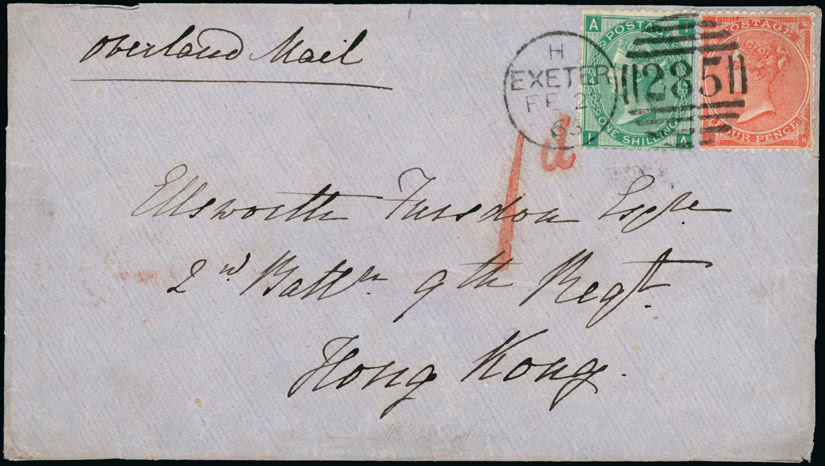 Overland Mail
H
EXETER
FE 2
65
285
A
POSTAGE
ONE SHILLING
A
POSTAGE
FOUR PENCE
1 d
Ellsworth Fursdon Esqre
2nd Battn 9th Regt.
Hong Kong.